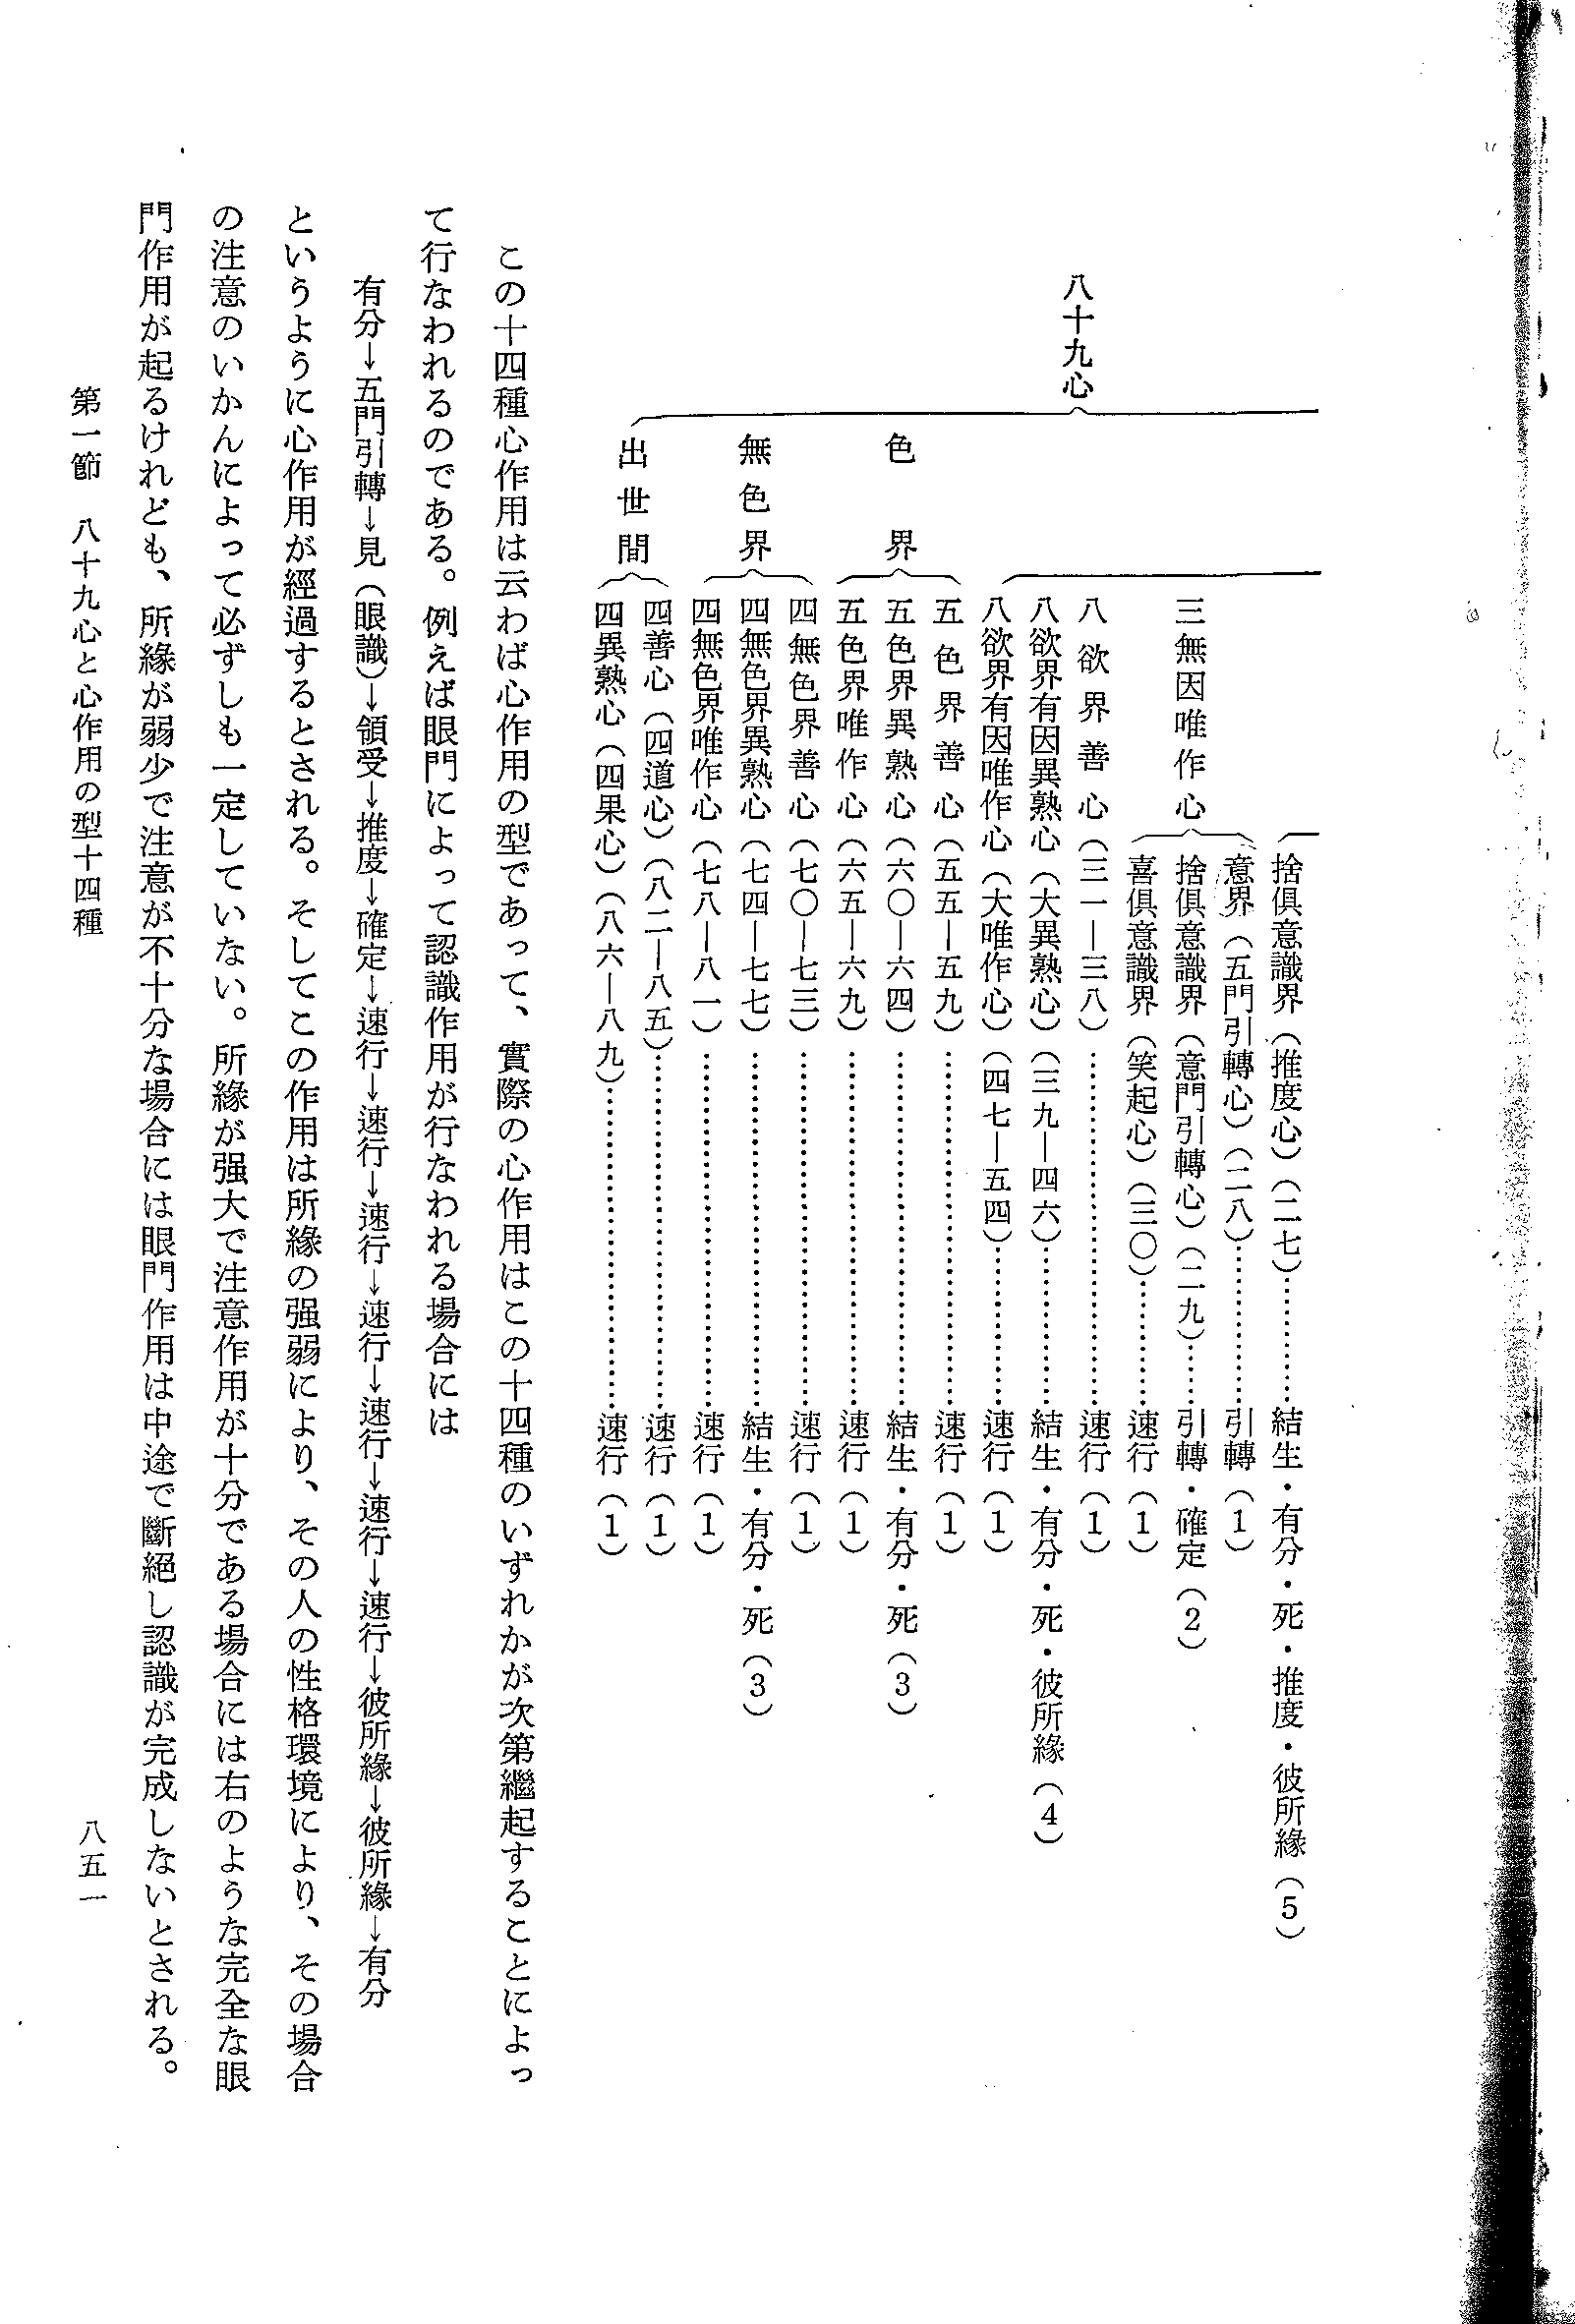 八十九心
捨俱意識界（推度心）（二七）…………結生・有分・死・推度・彼所緣（5）
三無因唯作心
意界（五門引轉心）（二八）…………引轉（1）
捨俱意識界（意門引轉心）（二九）……引轉・確定（2）
喜俱意識界（笑起心）（三〇）…………速行（1）
八欲界善心（三一―三八）…………速行（1）
八欲界有因異熟心（大異熟心）（三九―四六）…………結生・有分・死・彼所緣（4）
八欲界有因唯作心（大唯作心）（四七―五四）…………速行（1）
色界
五色界善心（五五―五九）…………速行（1）
五色界異熟心（六〇―六四）…………結生・有分・死（3）
五色界唯作心（六五―六九）…………速行（1）
無色界
四無色界善心（七〇―七三）…………速行（1）
四無色界異熟心（七四―七七）…………結生・有分・死（3）
四無色界唯作心（七八―八一）…………速行（1）
出世間
四善心（四道心）（八二―八五）…………速行（1）
四異熟心（四果心）（八六―八九）…………速行（1）
この十四種心作用は云わば心作用の型であって、實際の心作用はこの十四種のいずれかが次第繼起することによっ
て行なわれるのである。例えば眼門によって認識作用が行なわれる場合には
有分→五門引轉→見（眼識）→領受→推度→確定→速行→速行→速行→速行→速行→速行→速行→彼所緣→彼所緣→有分
というように心作用が經過するとされる。そしてこの作用は所緣の强弱により、その人の性格環境により、その場合
の注意のいかんによって必ずしも一定していない。所緣が强大で注意作用が十分である場合には右のような完全な眼
門作用が起るけれども、所緣が弱少で注意が不十分な場合には眼門作用は中途で斷絕し認識が完成しないとされる。
第一節　八十九心と心作用の型十四種
八五一